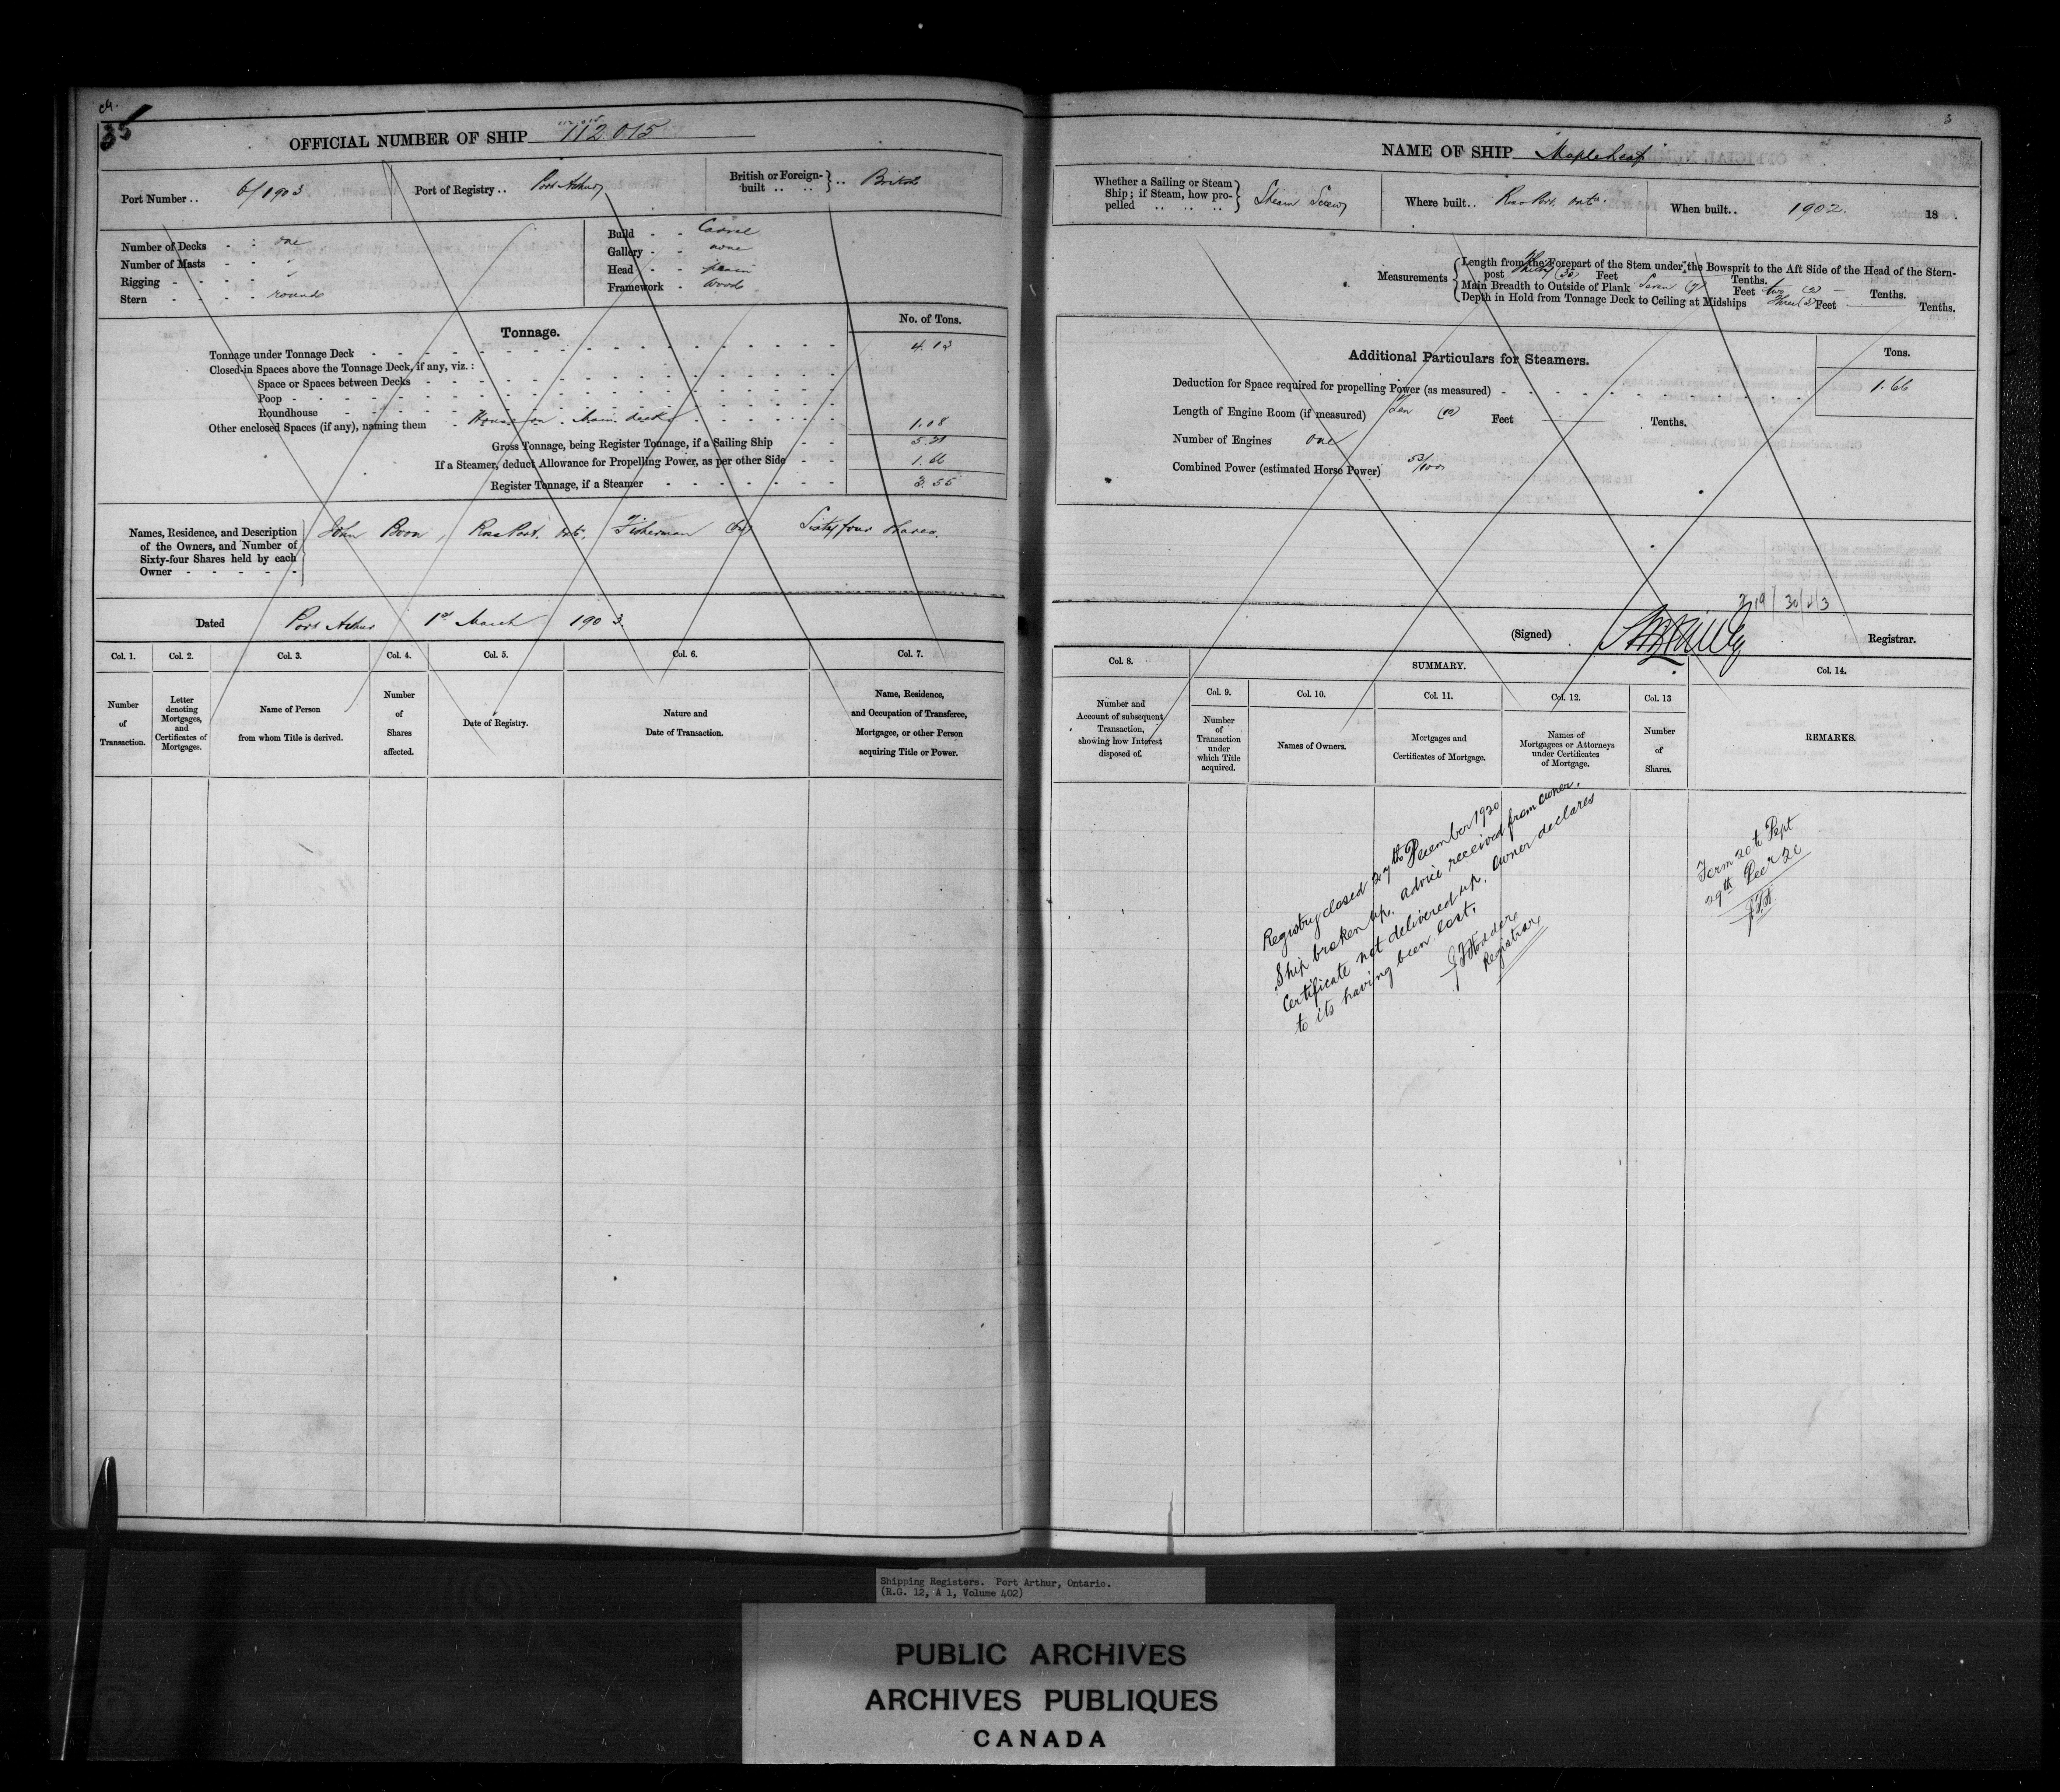 35
OFFICIAL NUMBER OF SHIP 112.015
Port Number .. 6/1903
Port of Registry .. Port Arthur
British or Foreign-built .. British
Number of Decks - - one
Number of Masts - - "
Rigging - - - - "
Stern - - - - round
Build - - Carvel
Gallery - - none
Head - - plain
Framework - wood
Tonnage.
No. of Tons.
Tonnage under Tonnage Deck 4.13
Closed-in Spaces above the Tonnage Deck, if any, viz. :
Space or Spaces between Decks
Poop
Roundhouse
Other enclosed Spaces (if any), naming them - House on main deck 1.08
Gross Tonnage, being Register Tonnage, if a Sailing Ship 5.21
If a Steamer, deduct Allowance for Propelling Power, as per other Side 1.66
Register Tonnage, if a Steamer 3.55
Names, Residence, and Description
of the Owners, and Number of
Sixty-four Shares held by each
Owner - - - - -
John Boon, RossPort. Ont. Fisherman (64) Sixty four shares.
Dated Port Arthur 1st March 1903.
Col. 1.
Col. 2.
Col. 3.
Col. 4.
Col. 5.
Col. 6.
Col. 7.
Number of Transaction.
Letter denoting Mortgages, and Certificates of Mortgages.
Name of Person from whom Title is derived.
Number of Shares affected.
Date of Registry.
Nature and Date of Transaction.
Name, Residence, and Occupation of Transferee, Mortgagee, or other Person acquiring Title or Power.
3
NAME OF SHIP Maple Leaf
Whether a Sailing or Steam
Ship; if Steam, how pro-
pelled .. .. ..
Steam Screw
Where built.. RossPort. Onto.
When built.. 1902. 18 .
Measurements
Length from the Forepart of the Stem under the Bowsprit to the Aft Side of the Head of the Stern-
post Thirty (30) Feet Tenths.
Main Breadth to Outside of Plank Seven (7) Feet two (2) Tenths.
Depth in Hold from Tonnage Deck to Ceiling at Midships Three (3) Feet Tenths.
Additional Particulars for Steamers.
Tons.
Deduction for Space required for propelling Power (as measured) 1.66
Length of Engine Room (if measured) Ten (10) Feet Tenths.
Number of Engines one
Combined Power (estimated Horse Power) 53/100
(Signed) Registrar.
Col. 8.
SUMMARY.
Col. 14.
Col. 9.
Col. 10.
Col. 11.
Col. 12.
Col. 13
Number and Account of subsequent Transaction, showing how Interest disposed of.
Number of Transaction under which Title acquired.
Names of Owners.
Mortgages and Certificates of Mortgage.
Names of Mortgagees or Attorneys under Certificates of Mortgage.
Number of Shares.
REMARKS.
Registry closed 29th December 1920
Ship broken up. advice received from owner,
Certificate not delivered up. Owner declares
to its having been lost.
Registrar
Form 20 to Dept
29th Dec 20
Shipping Registers. Port Arthur, Ontario.
(R.G. 12, A 1, Volume 402)
PUBLIC ARCHIVES
ARCHIVES PUBLIQUES
CANADA